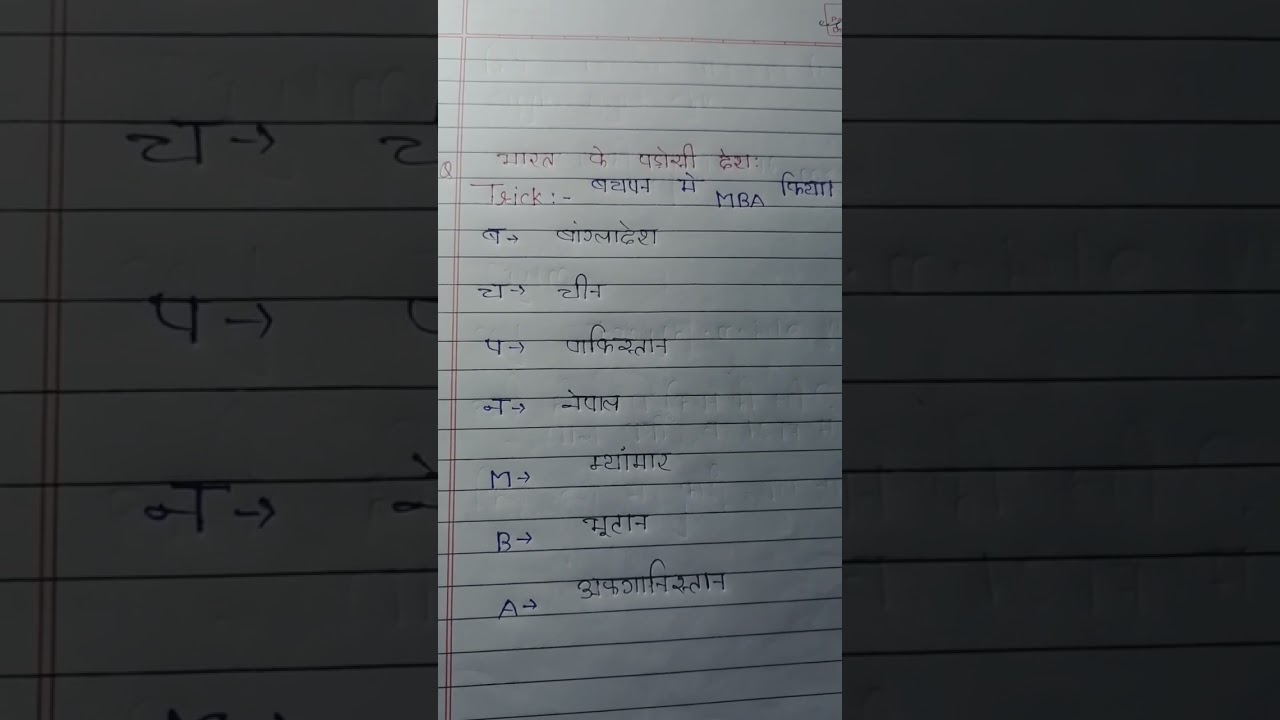 भारत के पड़ोसी देशः
Trick:- बचपन मे MBA किया।
ब→ बांग्लादेश
च→ चीन
प→ पाकिस्तान
न→ नेपाल
M→ म्यांमार
B→ भूटान
A→ अफगानिस्तान